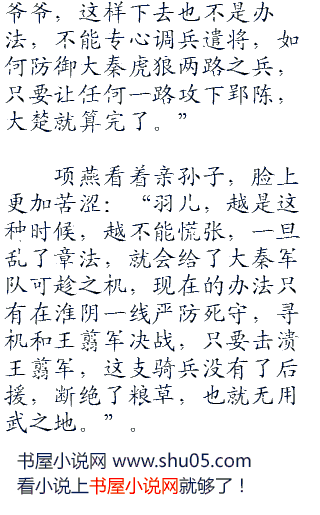 爷爷，这样下去也不是办
法，不能专心调兵遣将，如
何防御大秦虎狼两路之兵，
只要让任何一路攻下郢陈，
大楚就算完了。”
项燕看着亲孙子，脸上
更加苦涩：“羽儿，越是这
种时候，越不能慌张，一旦
乱了章法，就会给了大秦军
队可趁之机，现在的办法只
有在淮阴一线严防死守，寻
机和王翦军决战，只要击溃
王翦军，这支骑兵没有了后
援，断绝了粮草，也就无用
武之地。”。
书屋小说网 www.shu05.com
看小说上书屋小说网就够了！